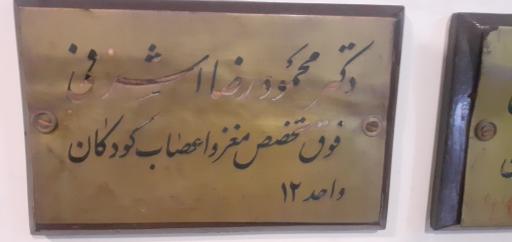 دکتر محمود رضا اشرفی
فوق تخصص مغز و اعصاب کودکان
واحد ۱۲